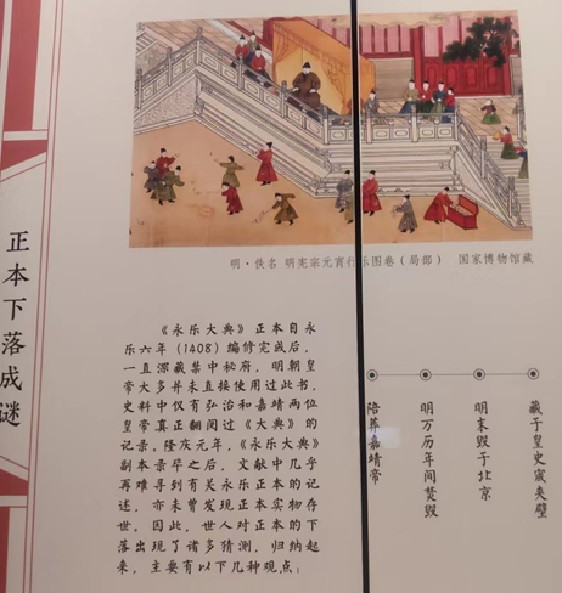 正本下落成谜
明·佚名 明宪宗元宵行乐图卷（局部） 国家博物馆藏
《永乐大典》正本自永
乐六年（1408）编修完成后，
一直深藏禁中秘府，明朝皇
帝大多并未直接使用过此书，
史料中仅有弘治和嘉靖两位
皇帝真正翻阅过《大典》的
记录。隆庆元年，《永乐大典》
副本录毕之后，文献中几乎
再难寻到有关永乐正本的记
述，亦未曾发现正本实物存
世。因此，世人对正本的下
落出现了诸多猜测，归纳起
来，主要有以下几种观点：
藏于皇史宬夹壁
明末毁于北京
明万历年间焚毁
陪葬嘉靖帝